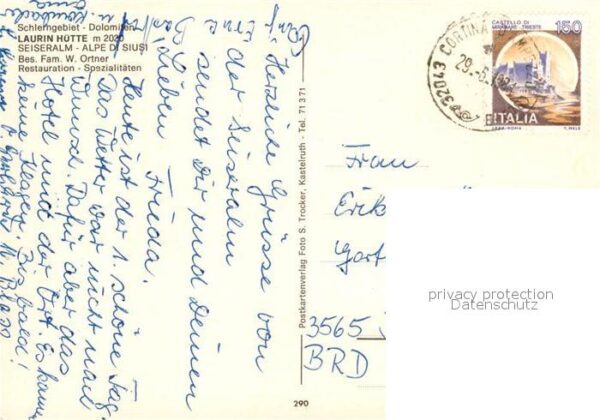 Schlerngebiet - Dolomiten
LAURIN HÜTTE m 2020
SEISERALM - ALPE DI SIUSI
Bes. Fam. W. Ortner
Restauration - Spezialitäten
Herzliche Grüsse von
der Seiseralm
sendet Dir und Deinen
Lieben
Frieda.
Heute ist der 1. schöne Tag.
Das Wetter war nicht nach
Wunsch. Dafür aber das
Hotel und der Ort. Es kann
keine Klagen. Bis bald!
Postkartenverlag Foto S. Trocker, Kastelruth - Tel. 71371
290
CASTELLO DI
MIRAMARE TRIESTE
150
ITALIA
CORTINA
32043
Frau
3565
BRD
privacy protection
Datenschutz